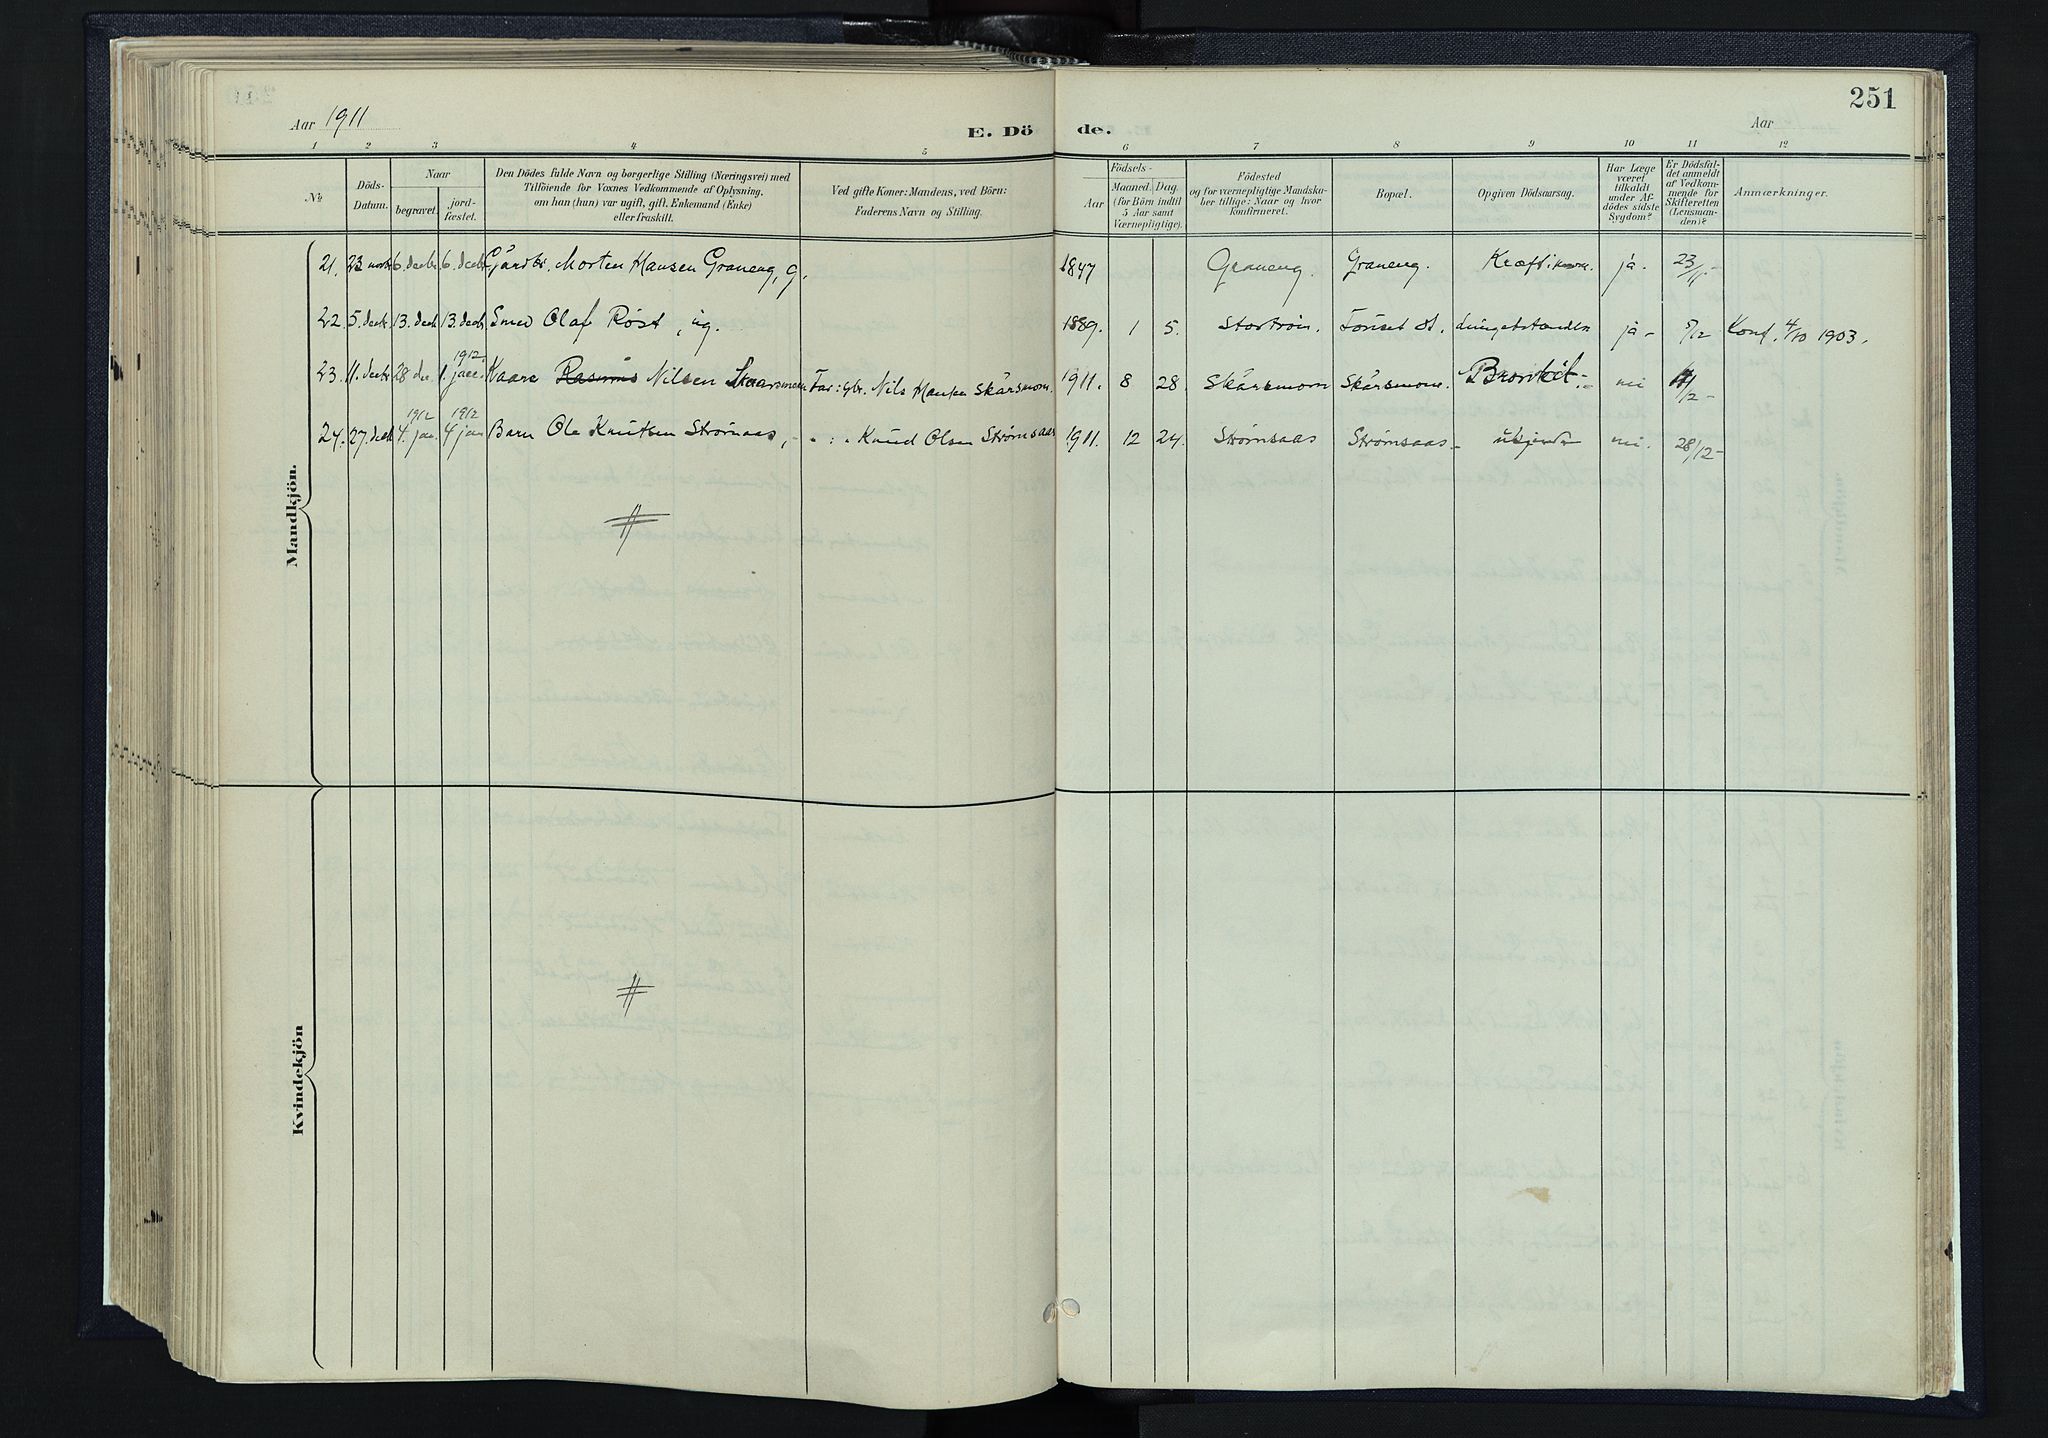 251
Aar 1911
E. Dö de.
Aar
1 2 3 4 5 6 7 8 9 10 11 12
№
Döds-Datum.
Naar
begravet.
jord-fæstet.
Den Dödes fulde Navn og borgerlige Stilling (Næringsvei) med
Tilföiende for Voxnes Vedkommende af Oplysning,
om han (hun) var ugift, gift, Enkemand (Enke)
eller fraskilt.
Ved gifte Koner: Mandens, ved Börn:
Faderens Navn og Stilling.
Födsels-
Aar
Maaned. Dag.
(for Börn indtil
5 Aar samt
Værnepligtige).
Födested
og for værnepligtige Mandska-
ber tillige: Naar og hvor
konfirmeret.
Bopæl.
Opgiven Dödsaarsag.
Har Læge
været
tilkaldt
under Af-
dödes sidste
Sygdom?
Er Dödsfal-
det anmeldt
af Vedkom-
mende for
Skifteretten
(Lensman-
den)?
Anmærkninger.
Mandkjön.
21. 23 novbr 6. decbr 6. decbr Gårdbr. Morten Hansen Graneng, g. 1847 Graneng. Graneng. Kræft ja. 23/11 -
22. 5. decbr 13. decbr 13. decbr Smed Olaf Röst, ug. 1889. 1 5. Storströn. Fonset st. ja - 5/12 Konf. 4/10 1903.
1912.
23. 11. decbr 28 dec 1. jan. Kaare Rasmus Nilsen Skaarsmoen Far: Gbr. Nils Hansen Skårsmoen. 1911. 8 28. Skårsmoen Skårsmoen. Bronkit. - nei 11/12 -
1912 1912
24. 27. decbr 4. jan. 4 jan Barn Ole Knutsen Strømsaas, - " : - Knud Olsen Strømsaas 1911. 12 24. Strømsaas Strømsaas - ukjendt nei. 28/12 -
Kvindekjön